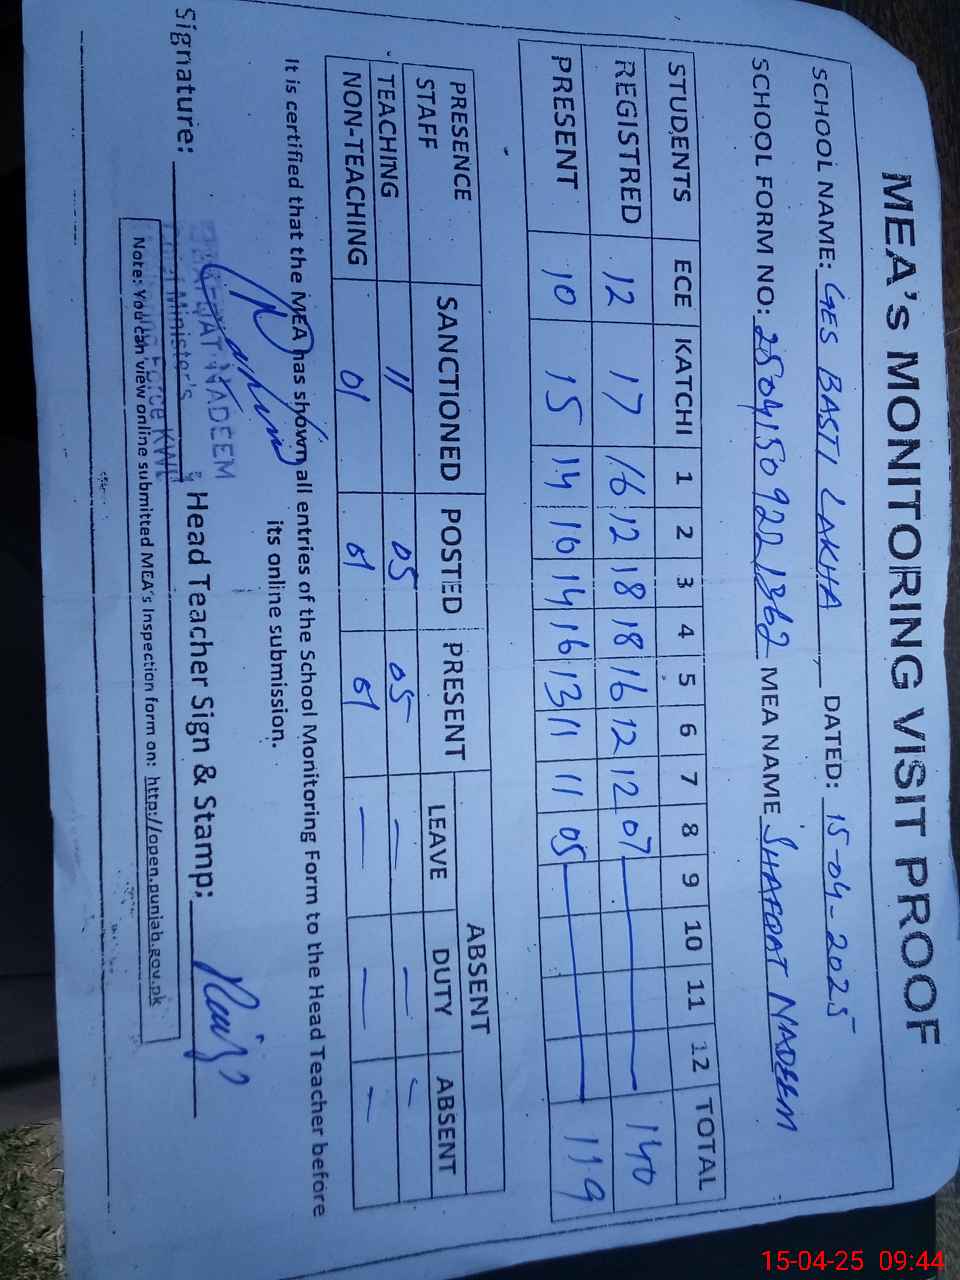 MEA's MONITORING VISIT PROOF
SCHOOL NAME: GES BASTI LAKHA DATED: 15-04-2025
SCHOOL FORM NO: 25041509221362 MEA NAME SHAFQAT NADEEM
STUDENTS ECE KATCHI 1 2 3 4 5 6 7 8 9 10 11 12 TOTAL
REGISTRED 12 17 16 12 18 18 16 12 12 07 — 140
PRESENT 10 15 14 10 14 16 13 11 11 05 — 119
PRESENCE SANCTIONED POSTED PRESENT ABSENT
STAFF LEAVE DUTY ABSENT
TEACHING 11 05 05 — — —
NON-TEACHING 01 01 01 — — —
It is certified that the MEA has shown all entries of the School Monitoring Form to the Head Teacher before
its online submission.
SHAFQAT NADEEM
Signature: Head Teacher Sign & Stamp:
Minister's
Force KWL
Note: You can view online submitted MEA's Inspection form on: http://open.punjab.gov.pk
15-04-25 09:44